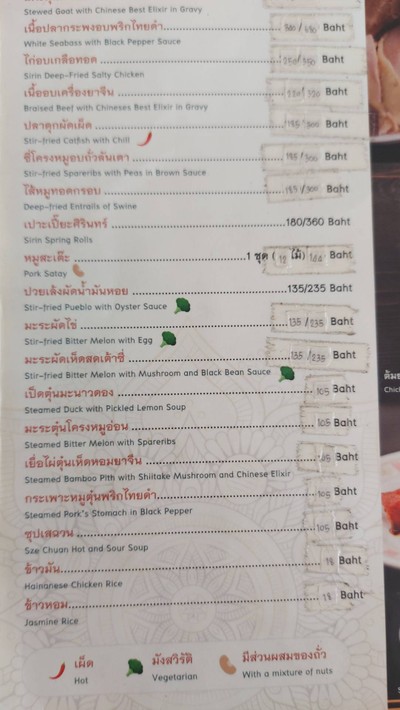 Stewed Goat with Chinese Best Elixir in Gravy
เนื้อปลากระพงอบพริกไทยดำ Baht
White Seabass with Black Pepper Sauce
ไก่อบเกลือทอด 250/350 Baht
Sirin Deep-Fried Salty Chicken
เนื้ออบเครื่องยาจีน Baht
Braised Beef with Chineses Best Elixir in Gravy
ปลาดุกผัดเผ็ด 185/300 Baht
Stir-fried Catfish with Chili
ซี่โครงหมูอบถั่วลันเตา 185/300 Baht
Stir-fried Spareribs with Peas in Brown Sauce
ไส้หมูทอดกรอบ 185/300 Baht
Deep-fried Entrails of Swine
เปาะเปี๊ยะศิรินทร์ 180/360 Baht
Sirin Spring Rolls
หมูสะเต๊ะ 1 ชุด ( 10 ไม้) Baht
Pork Satay
ปวยเล้งผัดน้ำมันหอย 135/235 Baht
Stir-fried Pueblo with Oyster Sauce
มะระผัดไข่ 135/235 Baht
Stir-fried Bitter Melon with Egg
มะระผัดเห็ดสดเต้าซี่ 135/235 Baht
Stir-fried Bitter Melon with Mushroom and Black Bean Sauce
เป็ดตุ๋นมะนาวดอง 105 Baht
Steamed Duck with Pickled Lemon Soup
มะระตุ๋นโครงหมูอ่อน 105 Baht
Steamed Bitter Melon with Spareribs
เยื่อไผ่ตุ๋นเห็ดหอมยาจีน 105 Baht
Steamed Bamboo Pith with Shiitake Mushroom and Chinese Elixir
กระเพาะหมูตุ๋นพริกไทยดำ 105 Baht
Steamed Pork's Stomach in Black Pepper
ซุปเสฉวน 105 Baht
Sze Chuan Hot and Sour Soup
ข้าวมัน 18 Baht
Hainanese Chicken Rice
ข้าวหอม 18 Baht
Jasmine Rice
เผ็ด
Hot
มังสวิรัติ
Vegetarian
มีส่วนผสมของถั่ว
With a mixture of nuts